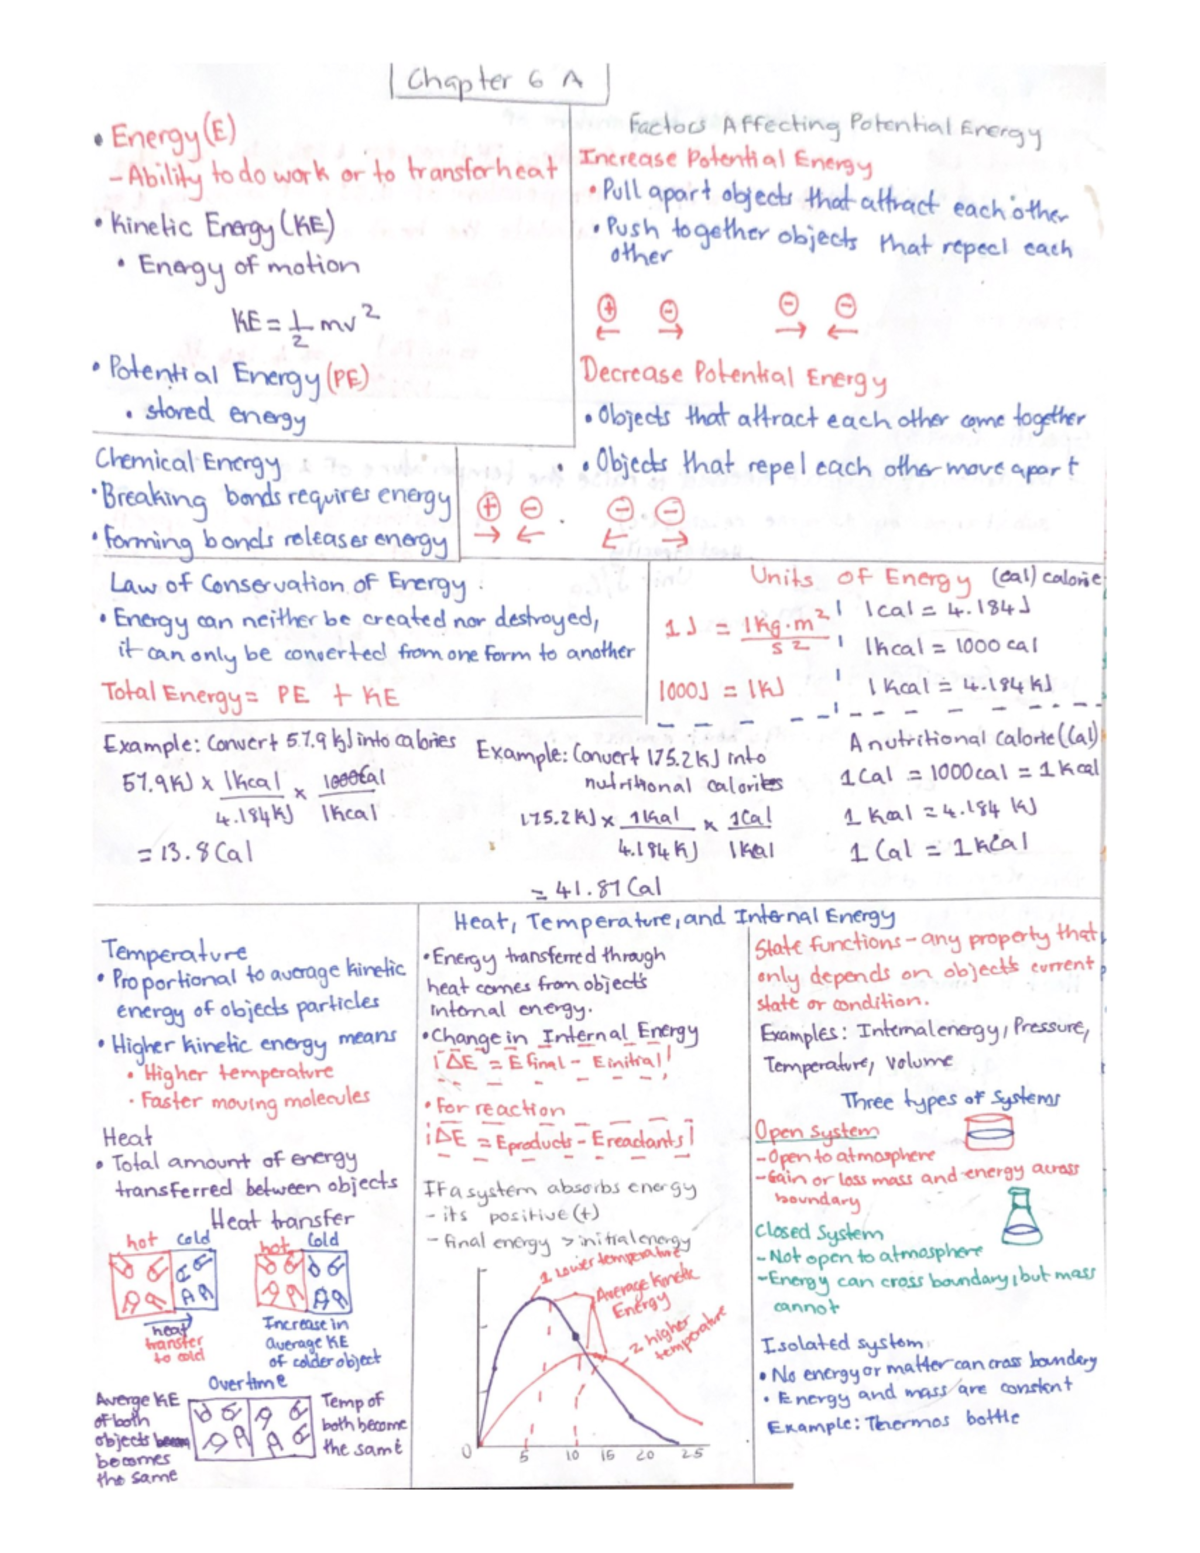 Chapter 6 A
• Energy (E)
- Ability to do work or to transfor heat
• Kinetic Energy (KE)
• Energy of motion
KE = 1/2 mv²
• Potential Energy (PE)
• stored energy
Factors Affecting Potential Energy
Increase Potential Energy
• Pull apart objects that attract each other
• Push together objects that repecl each
other
+ - - -
← → → ←
Decrease Potential Energy
• Objects that attract each other come together
• Objects that repel each other move apart
+ - - -
→ ← ← →
Chemical Energy
• Breaking bonds requires energy
• Forming bonds releases energy
Law of Conservation of Energy
• Energy can neither be created nor destroyed,
it can only be converted from one form to another
Total Energy = PE + KE
Units of Energy (cal) calorie
1J = 1Kg·m²/s²
1000J = 1KJ
1cal = 4.184J
1kcal = 1000 cal
1kcal = 4.184 KJ
Example: Convert 57.9 kJ into calories
57.9KJ x 1kcal/4.184KJ x 1000cal/1kcal
= 13.8 Cal
Example: Convert 175.2 KJ into
nutritional calories
175.2KJ x 1kcal/4.184KJ x 1Cal/1kcal
= 41.87 Cal
A nutritional Calorie (Cal)
1 Cal = 1000 cal = 1 kcal
1 kcal = 4.184 KJ
1 Cal = 1 kcal
Heat, Temperature, and Internal Energy
Temperature
• Proportional to average kinetic
energy of objects particles
• Higher kinetic energy means
• Higher temperature
• Faster moving molecules
Heat
• Total amount of energy
transferred between objects
Heat transfer
hot cold
heat
transfer
to cold
hot cold
Increase in
average KE
of colder object
Over time
Averge KE
of both
objects
becomes
the same
Temp of
both become
the same
• Energy transferred through
heat comes from objects
internal energy.
• Change in Internal Energy
ΔE = E final - E initial
• For reaction
ΔE = Eproducts - Ereactants
If a system absorbs energy
- its positive (+)
- final energy > initial energy
1 Lower temperature
Average kinetic
Energy
2 higher
temperature
0 5 10 15 20 25
State functions - any property that
only depends on objects current
state or condition.
Examples: Internal energy, Pressure,
Temperature, Volume
Three types of systems
Open System
- Open to atmosphere
- Gain or loss mass and energy across
boundary
Closed System
- Not open to atmosphere
- Energy can cross boundary, but mass
cannot
Isolated system
• No energy or matter can cross boundary
• Energy and mass are constent
Example: Thermos bottle